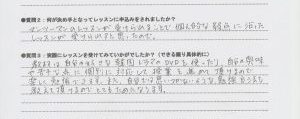 ●質問2：何が決め手となってレッスンに申込みをされましたか？
マンツーマンのレッスンが受けられることで個人的な弱点に沿った
レッスンが受けられると思ったため。
●質問3：実際にレッスンを受けてみていかがでしたか？（できる限り具体的に）
教材は、自分の好きな韓国ドラマのDVDを使ったり、自分の興味
や苦手な点に個別に対応して授業を進めて頂けるので
楽しく勉強できます。また、自分では思いつかないような勉強方法も
教えて頂けるのでとてもためになります。